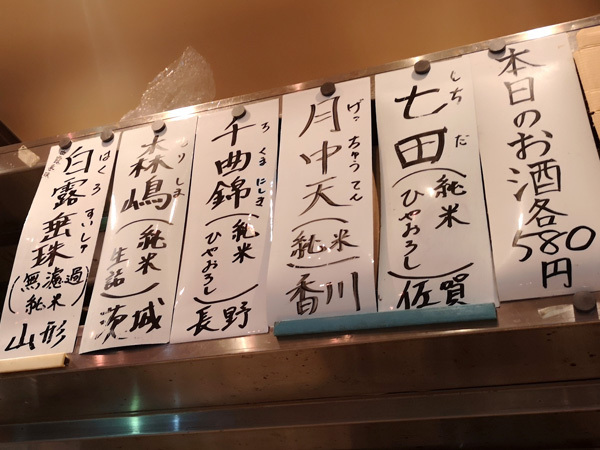 本日のお酒各
580
円
しちだ
七田
(純米
ひやおろし)
佐賀
げっちゅうてん
月中天
(純米)
香川
くまにしき
千曲錦
(純米
ひやおろし)
長野
りしま
森嶋
(純米
生詰)
茨城
はくろ
すいしゅ
白露垂珠
(無濾過
純米)
山形